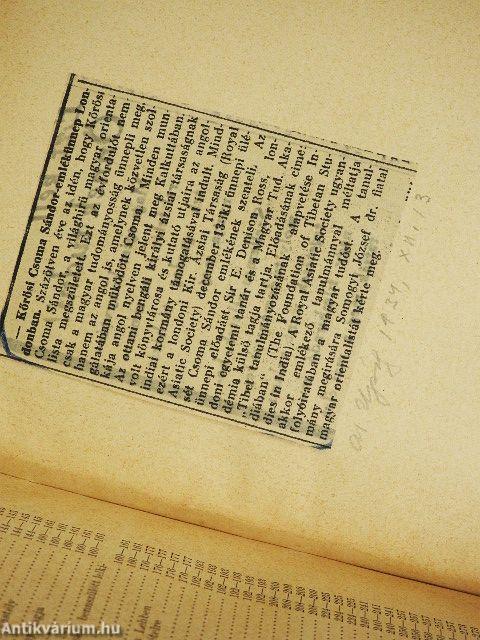 — Kőrösi Csoma Sándor-emlékünnep Lon-
donban. Százötven éve az idén, hogy Kőrösi
Csoma Sándor, a világhírű magyar orienta-
lista megszületett. Ezt az évfordulót nem-
csak a magyar tudományosság ünnepli meg,
hanem az angol is, amelynek közvetlen szol-
gálatában működött Csoma. Minden mun-
kája angol nyelven jelent meg Kalkuttában.
Az ottani bengáli királyi ázsiai társaságnak
volt könyvtárosa és kutató utjaira az angol-
indiai kormány támogatásával indult. Mind-
ezért a londoni Kir. Ázsiai Társaság (Royal
Asiatic Society) december 13-iki ünnepi ülé-
sét Csoma Sándor emlékének szenteli. Az
ünnepi előadást Sir E. Denison Ross, lon-
doni egyetemi tanár és a Magyar Tud. Aka-
démia külső tagja tartja. Előadásának címe:
„Tibet tanulmányozásának alapvetése In-
diában" (The Foundation of Tibetan Stu-
dies in India). A Royal Asiatic Society ugyan-
akkor emlékező tanulmánnyal méltatja
folyóiratában a magyar tudóst. A tanul-
mány megírására Somogyi József dr. fiatal
magyar orientalistát kérte meg.
1934, XII. 13
144—145
160—161
160—161
176—177
176—177
192—193
192—193
208—209
208—209
224—225
240—241
Antikvárium.hu